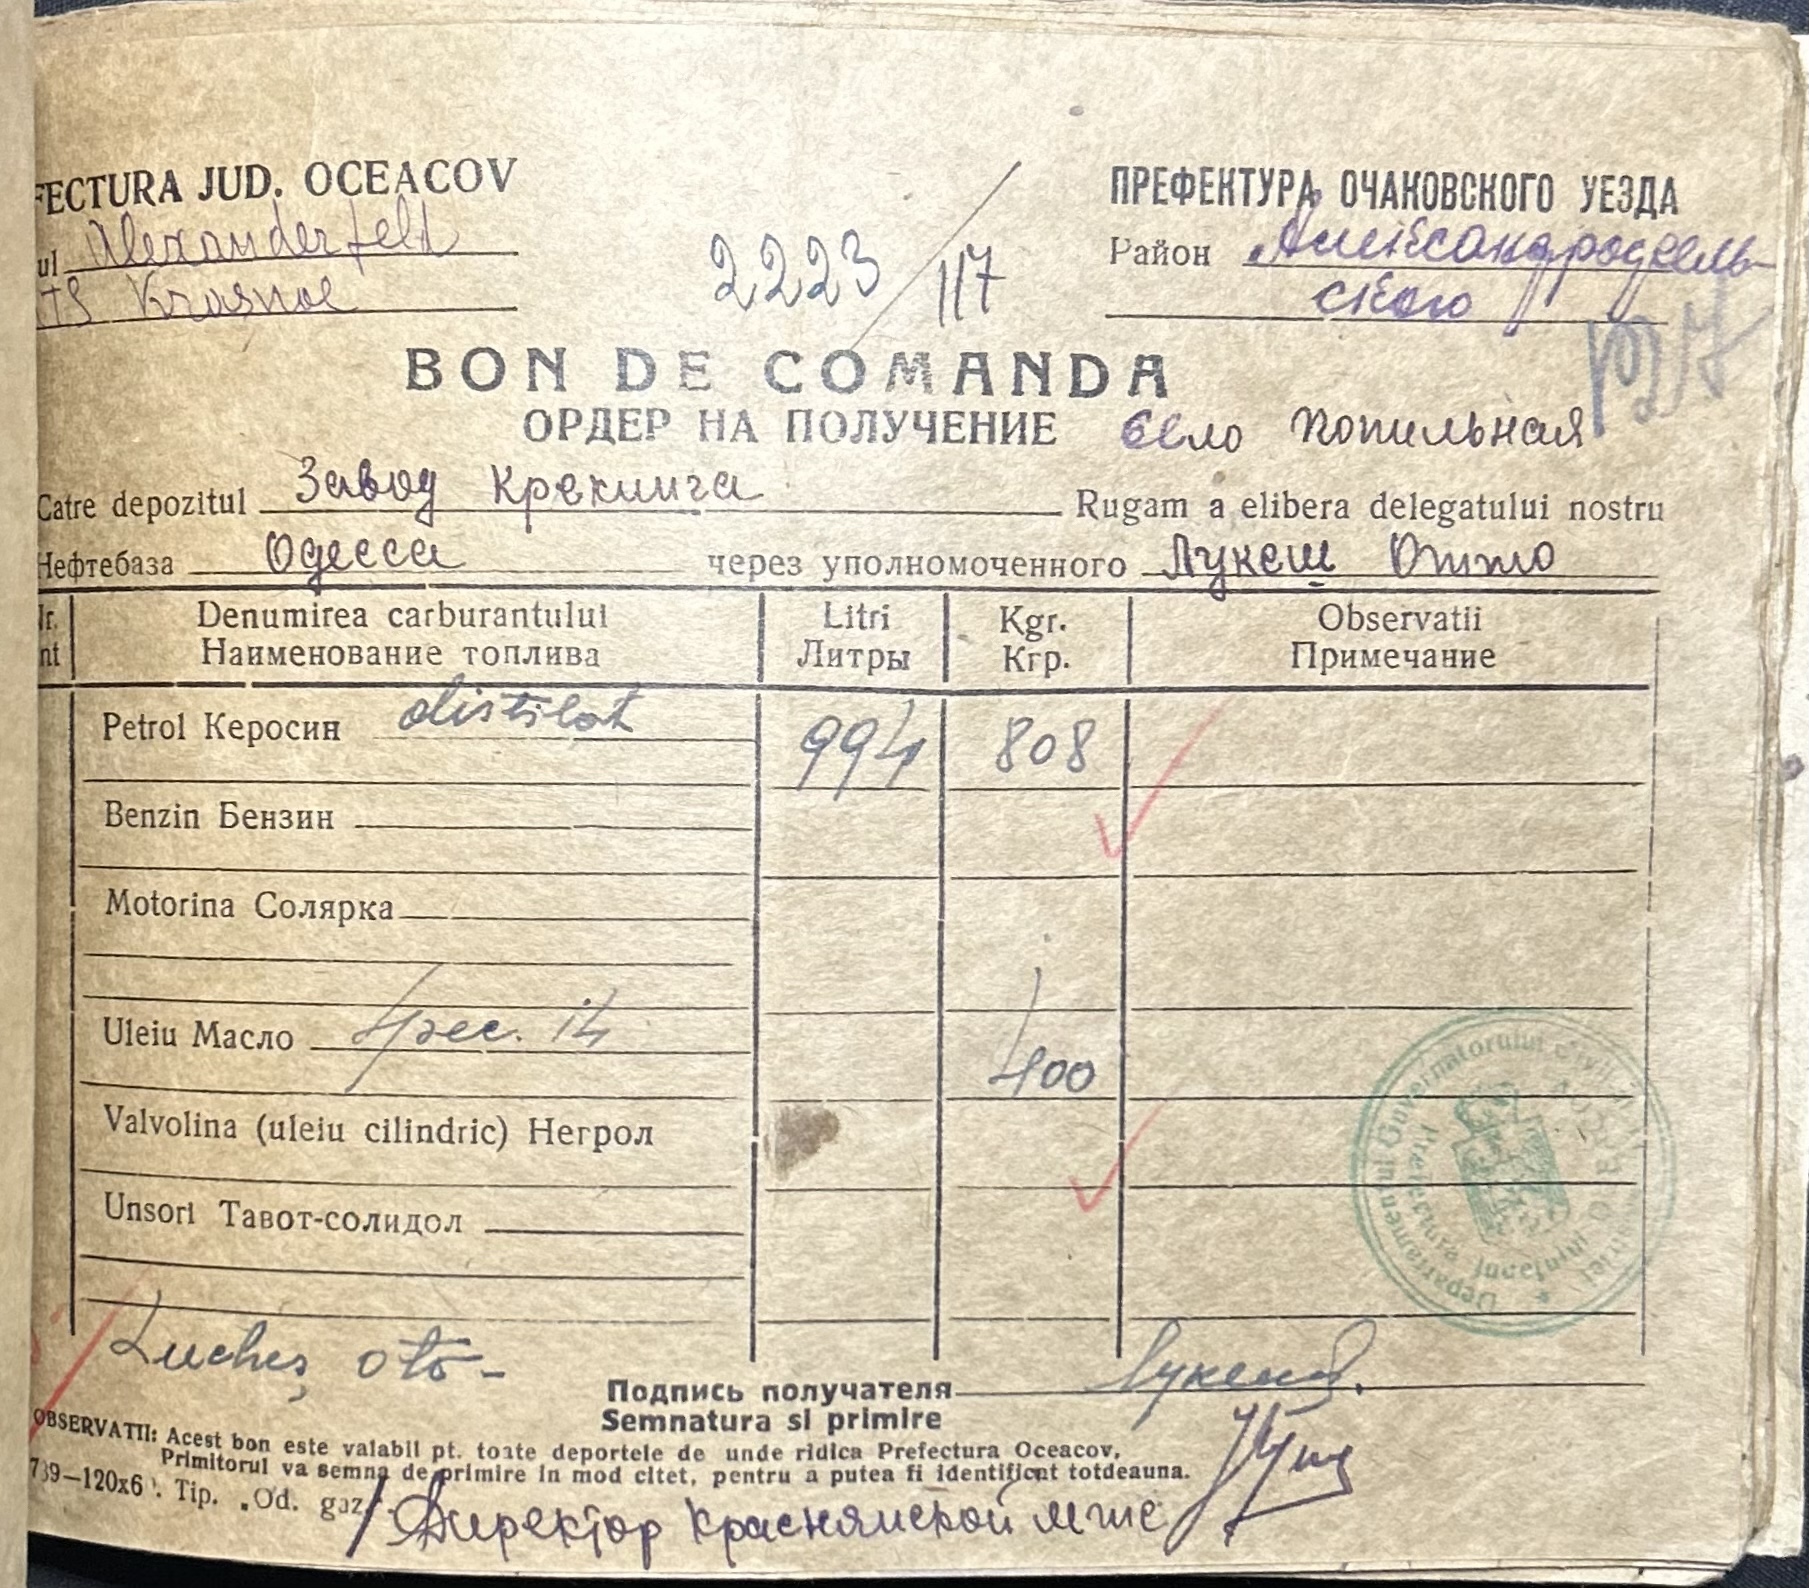 FECTURA JUD. OCEACOV
ul Alexanderfeld
TS Krasnoe
2223/117
ПРЕФЕКТУРА ОЧАКОВСКОГО УЕЗДА
Район Александрофель-
ского
BON DE COMANDA
ОРДЕР НА ПОЛУЧЕНИЕ село Копильная
Catre depozitul Завод Крекинга Rugam a elibera delegatului nostru
Нефтебаза Одесса через уполномоченного Лукеш Отто
Nr. Denumirea carburantului Litri Kgr. Observatii
nt Наименование топлива Литры Кгр. Примечание
Petrol Керосин distilat 994 808
Benzin Бензин
Motorina Солярка
Uleiu Масло 400
Valvolina (uleiu cilindric) Негрол
Unsori Тавот-солидол
Departamentul Guvernatorului Civil al Transnistriei
Prefectura Județului
Lucheș oto -
Подпись получателя Лукеш
Semnatura si primire
OBSERVATII: Acest bon este valabil pt. toate deportele de unde ridica Prefectura Oceacov,
Primitorul va semna de primire in mod citet, pentru a putea fi identificat totdeauna.
739—120x6 . Tip. „Od. gaz
Директор Краснянской мтс